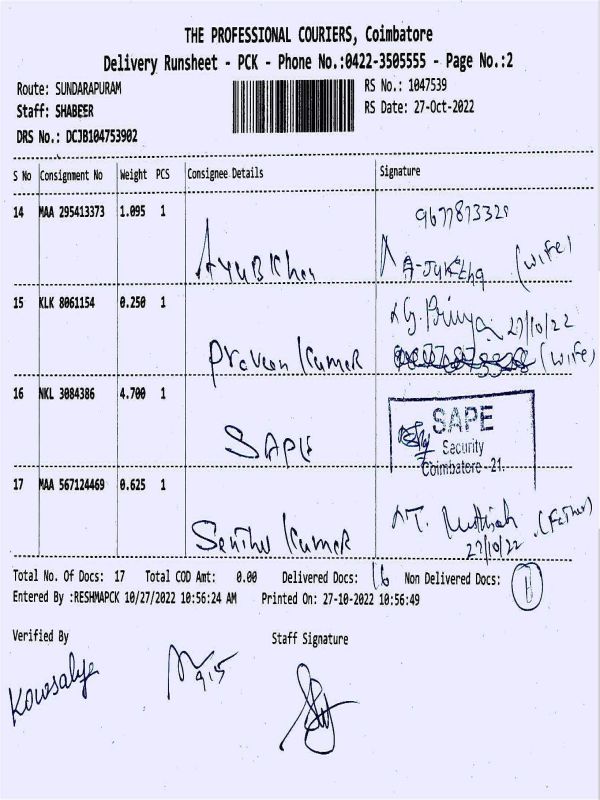 THE PROFESSIONAL COURIERS, Coimbatore
Delivery Runsheet - PCK - Phone No.:0422-3505555 - Page No.:2
Route: SUNDARAPURAM
RS No.: 1047539
Staff: SHABEER
RS Date: 27-Oct-2022
DRS No.: DCJB104753902
S No Consignment No Weight PCS Consignee Details Signature
14 MAA 295413373 1.095 1
(wife)
15 KLK 8061154 0.250 1
Priya 27/10/22
Praveen Kumar (wife)
16 NKL 3084386 4.700 1
SAPE
SAPE
Security
Coimbatore -21.
17 MAA 567124469 0.625 1
(Father)
Kumar 27/10/22
Total No. Of Docs: 17 Total COD Amt: 0.00 Delivered Docs: 16 Non Delivered Docs: 1
Entered By :RESHMAPCK 10/27/2022 10:56:24 AM Printed On: 27-10-2022 10:56:49
Verified By Staff Signature
Kowsalya